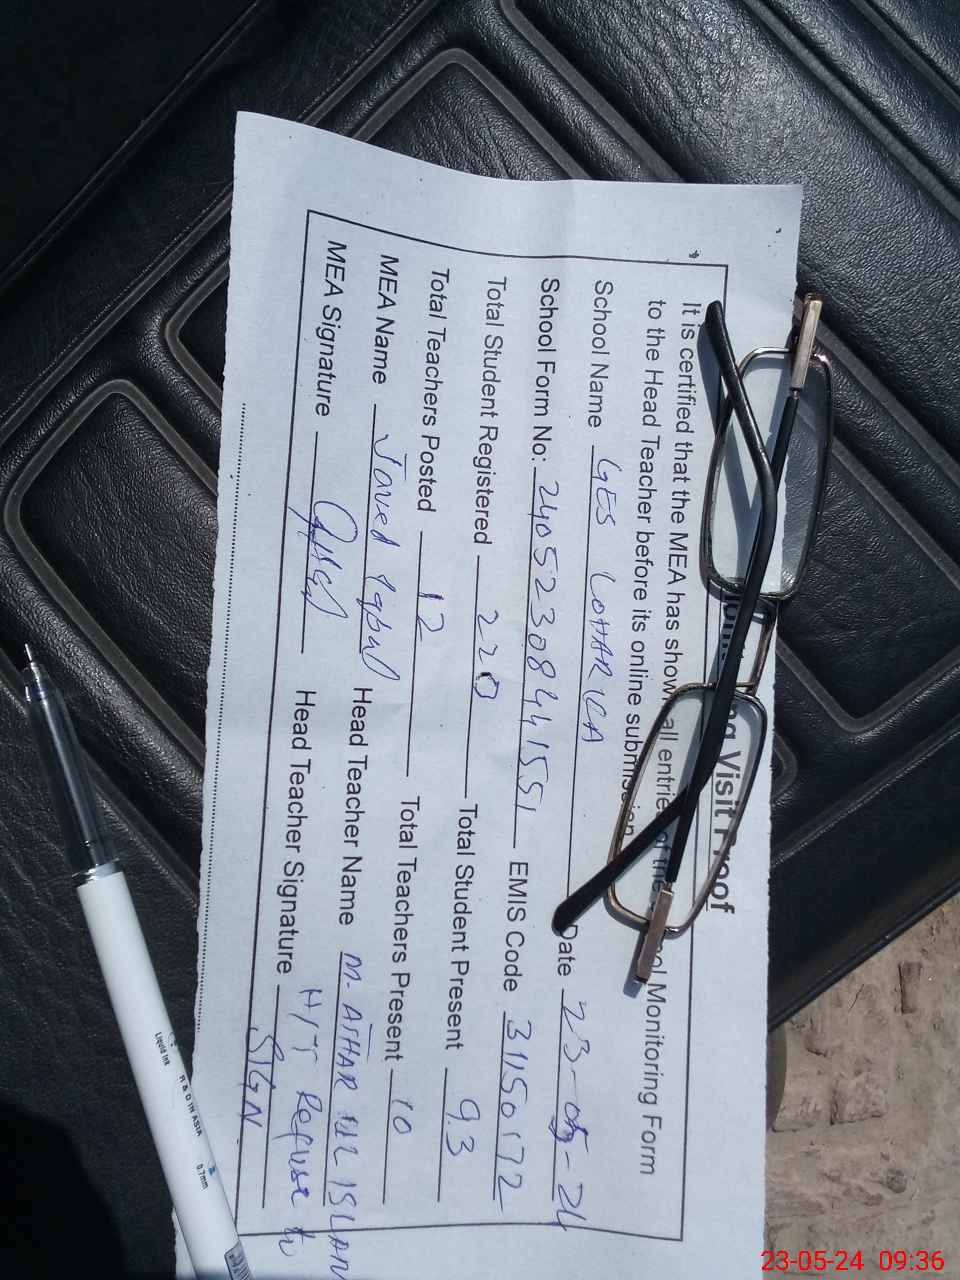 ng Visit Proof
It is certified that the MEA has show all entries of the Monitoring Form
to the Head Teacher before its online submission
School Name GES LOHAR Date 23-05-24
School Form No: 24052308441551 EMIS Code 31150172
Total Student Registered 220 Total Student Present 93
Total Teachers Posted 12 Total Teachers Present 10
MEA Name Javed Iqbal Head Teacher Name M. ATHAR UL ISLAM
MEA Signature Head Teacher Signature H/T Refuse to
SIGN
Liquid Ink R & D IN ASIA 0.7mm
23-05-24 09:36